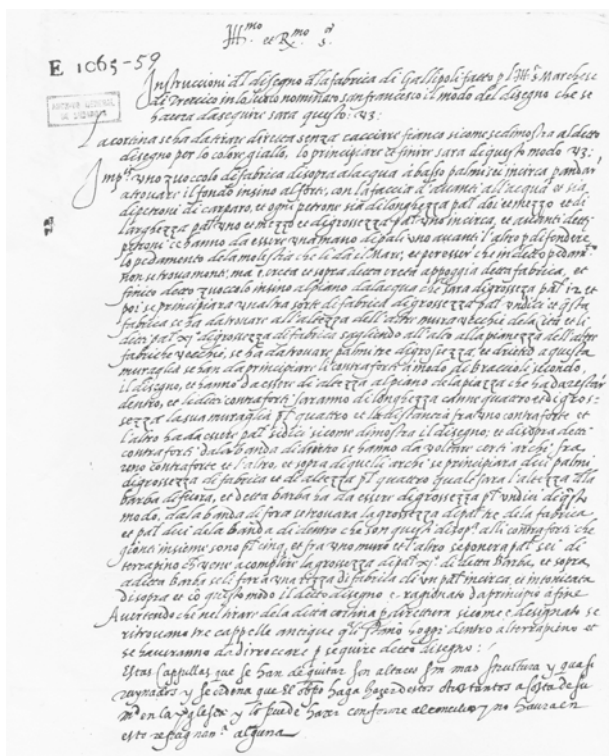 Ill.mo et R.mo s.or
E 1065-59
Instruccioni dil disegno dila fabrica di Gallipoli facto p l'Ill. S. Marchese
di Trevico in lo loco nominato san francesco il modo del disegno che se
haverà da seguire sara questo: 
La cortina se ha da tirare directa senza cacciare fianco sicome se dimostra al detto
disegno per lo colore giallo, lo principiare et finire sara di questo modo
Imp. uno zuoccolo di fabrica di sopra alacqua a basso palmi incirca
atrovare il fondo insino al forte, con la faccia d'avanti all'acqua et sia
di petroni di carparo, et ogni petrone sia di longhezza pal. doi et mezzo et di
larghezza pal. uno et mezzo et di grossezza pal. uno incirca, et avanti detti
petroni ce hanno da essere una mano di pali uno avanti l'altro p difendere
lo pedamento dela molestia che li da il Mare, et perosser che in detto pedam.to
non se trova monte, ma è creta et sopra detta creta appoggia detta fabrica, et
finito detto zuoccolo insino al piano dalacqua che sara di grossezza pal. 12 et
poi se principiara un altra sorte de fabrica di grossezza pal. undici et questa
fabrica se ha da trovare all'altezza dell'altre mura vecchie dela cità et li
detti pal. XI di grossezza di fabrica sagliendo all'alto alla pianezza dell'altre
fabriche vecchie, se ha da trovare palmi tre di grossezza, et drieto a questa
muraglia se han da principiare li contraforti a modo di braccioli secondo
il disegno, et hanno da essere di altezza al piano dela piazza che ha da restar
dentro, et li detti contraforti saranno di longhezza canne quattro et di gros-
sezza la sua muraglia p.l quattro et la distanza fra uno contraforte et
l'altro ha da essere pal. sidici sicome dimostra il disegno; et di sopra detti
contraforti dala banda di dentro se hanno da voltare certi archi fra
uno contraforte et l'altro, et sopra di quelli archi se principiara dui palmi
di grossezza di fabrica et di altezza p.l quattro quale sara l'altezza dila
barba di fuora, et detta barba ha da essere di grossezza p.l undici di questo
modo, dala banda di fora se trovara la grossezza di pal. tre dela fabrica
et pal. dui dela banda di dentro che son questi di sop.a alli contraforti che
gionti insieme sono p.l cinq. et fra uno muro et l'altro se ponera pal. sei di
terrapino che vene a complire la grossezza di pal. XI di detta barba, et sopra
a detta barba se li farà una tezza di fabrica di un pal. incirca, et intonicata
di sopra et cò questo modo il detto disegno è ragionato da principio a fine
Avertendo che nel tirare dela detta cortina p direttura sicome è designato se
ritrovano tre cappelle antique hoggi dentro al terrapino et
se haveranno da dirroccare p sequire detto disegno:
Estas Cappillas que se han de quitar son altares sin mas strutura y quasi
ruynados y se ordena que el obpo haga hazer destos otros tantos a costa de su
m.d en la yglesia y lo puede hazer conforme al concilio y no haura en
esto repugnan.a alguna